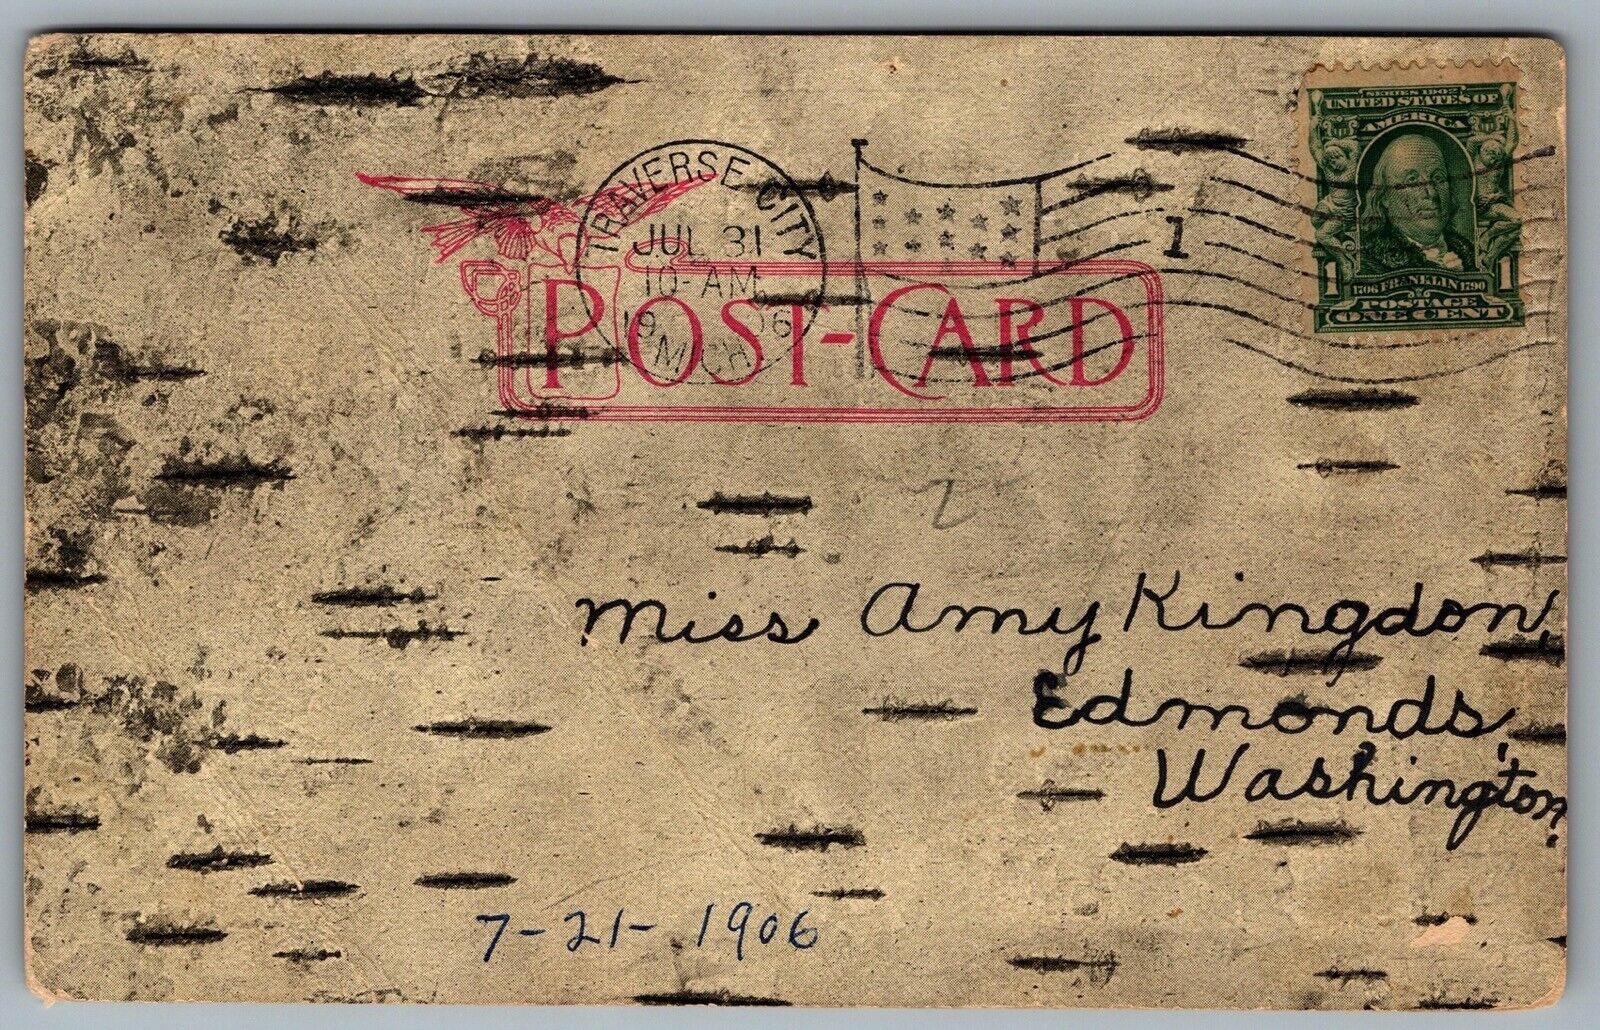 SERIES 1902
UNITED STATES OF
AMERICA
1706 FRANKLIN 1790
1 1
POSTAGE
ONE CENT
TRAVERSE CITY
JUL 31
10-AM
1906
MICH.
1
POST-CARD
2
Miss Amy Kingdon,
Edmonds,
Washington.
7-21-1906